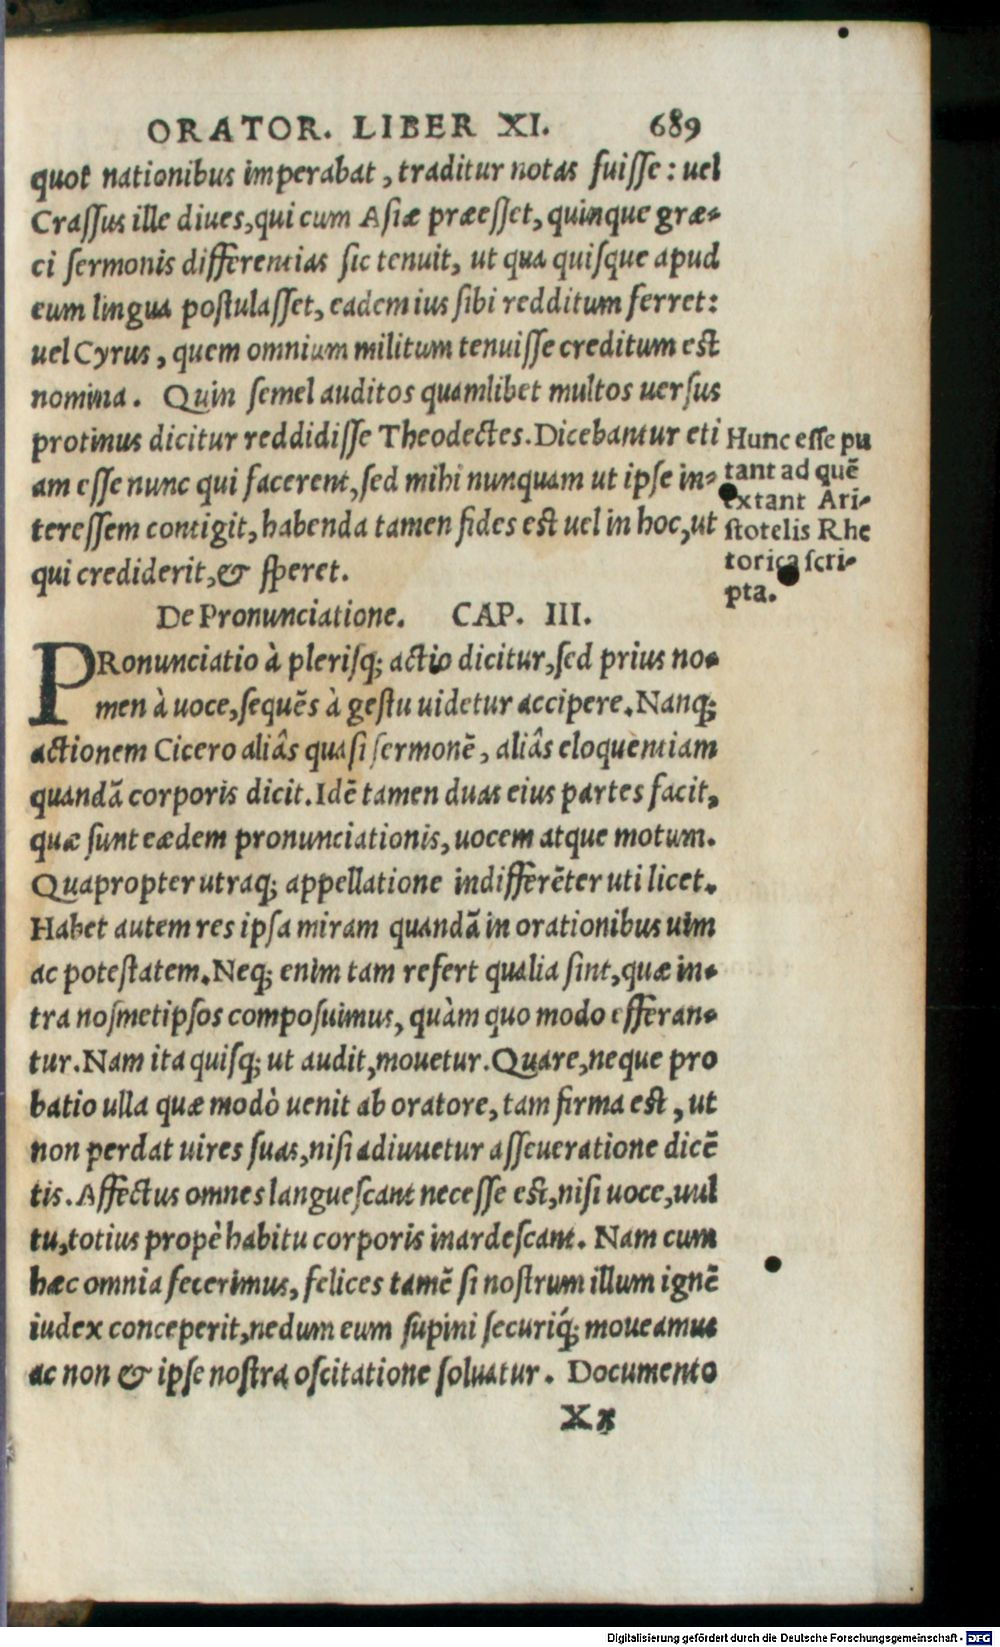 ORATOR. LIBER XI. 689
quot nationibus imperabat, traditur notas fuiſſe: uel
Craſſus ille diues, qui cum Aſiæ præeſſet, quinque græ-
ci ſermonis differentias ſic tenuit, ut qua quiſque apud
eum lingua poſtulaſſet, eadem ius ſibi redditum ferret:
uel Cyrus, quem omnium militum tenuiſſe creditum eſt
nomina. Quin ſemel auditos quamlibet multos uerſus
protinus dicitur reddidiſſe Theodectes. Dicebantur eti
am eſſe nunc qui facerent, ſed mihi nunquam ut ipſe in-
tereſſem contigit, habenda tamen fides eſt uel in hoc, ut
qui crediderit, & ſperet.
Hunc eſſe pu
tant ad quē
extant Ari-
ſtotelis Rhe
torica ſcri-
pta.
De Pronunciatione. CAP. III.
PRonunciatio à pleriſq; actio dicitur, ſed prius no-
men à uoce, ſequēs à geſtu uidetur accipere. Nanq;
actionem Cicero aliâs quaſi ſermonē, aliâs eloquentiam
quandā corporis dicit. Idē tamen duas eius partes facit,
quæ ſunt eædem pronunciationis, uocem atque motum.
Quapropter utraq; appellatione indifferēter uti licet.
Habet autem res ipſa miram quandā in orationibus uim
ac poteſtatem. Neq; enim tam refert qualia ſint, quæ in-
tra noſmetipſos compoſuimus, quàm quo modo efferan-
tur. Nam ita quiſq; ut audit, mouetur. Quare, neque pro
batio ulla quæ modò uenit ab oratore, tam firma eſt, ut
non perdat uires ſuas, niſi adiuuetur aſſeueratione dicē
tis. Affectus omnes langueſcant neceſſe eſt, niſi uoce, uul
tu, totius propè habitu corporis inardeſcant. Nam cum
hæc omnia fecerimus, felices tamē ſi noſtrum illum ignē
iudex conceperit, nedum eum ſupini ſecuriq́; moueamus
ac non & ipſe noſtra oſcitatione ſoluatur. Documento
Xx
Digitalisierung gefördert durch die Deutsche Forschungsgemeinschaft - DFG